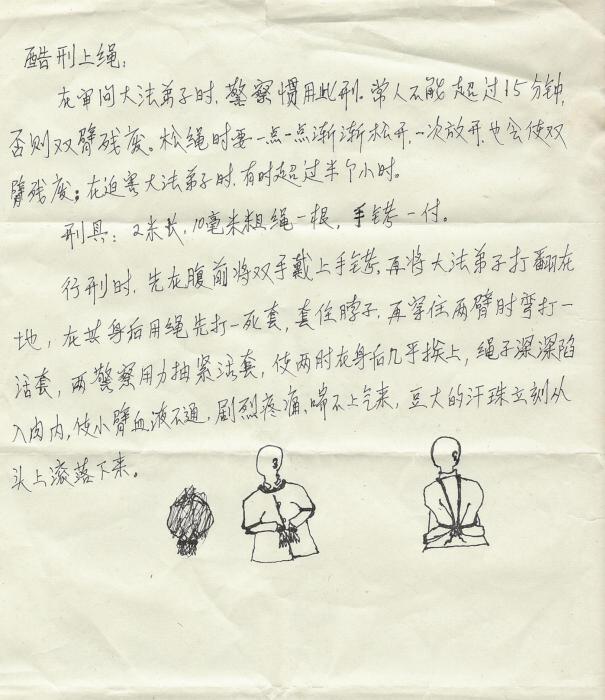 酷刑上绳:
在审问大法弟子时,警察惯用此刑。常人不能超过15分钟,
否则双臂残废。松绳时要一点一点渐渐松开,一次放开,也会使双
臂残废;在迫害大法弟子时,有时超过半个小时。
刑具: 2米长,10毫米粗绳一根,手铐一付。
行刑时,先在腹前将双手戴上手铐,再将大法弟子打翻在
地,在其身后用绳先打一死套,套住脖子,再穿住两臂肘弯打一
活套,两警察用力抽紧活套,使两肘在身后几乎挨上,绳子深深陷
入肉内,使小臂血液不通,剧烈疼痛,喘不上气来,豆大的汗珠立刻从
头上滚落下来。